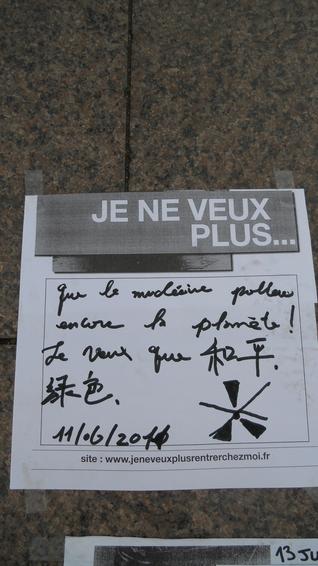 JE NE VEUX
PLUS...
que le nucléaire pollue
encore la planète !
Je veux que 和平.
绿色.
11/06/2011
site : www.jeneveuxplusrentrerchezmoi.fr
13 JU